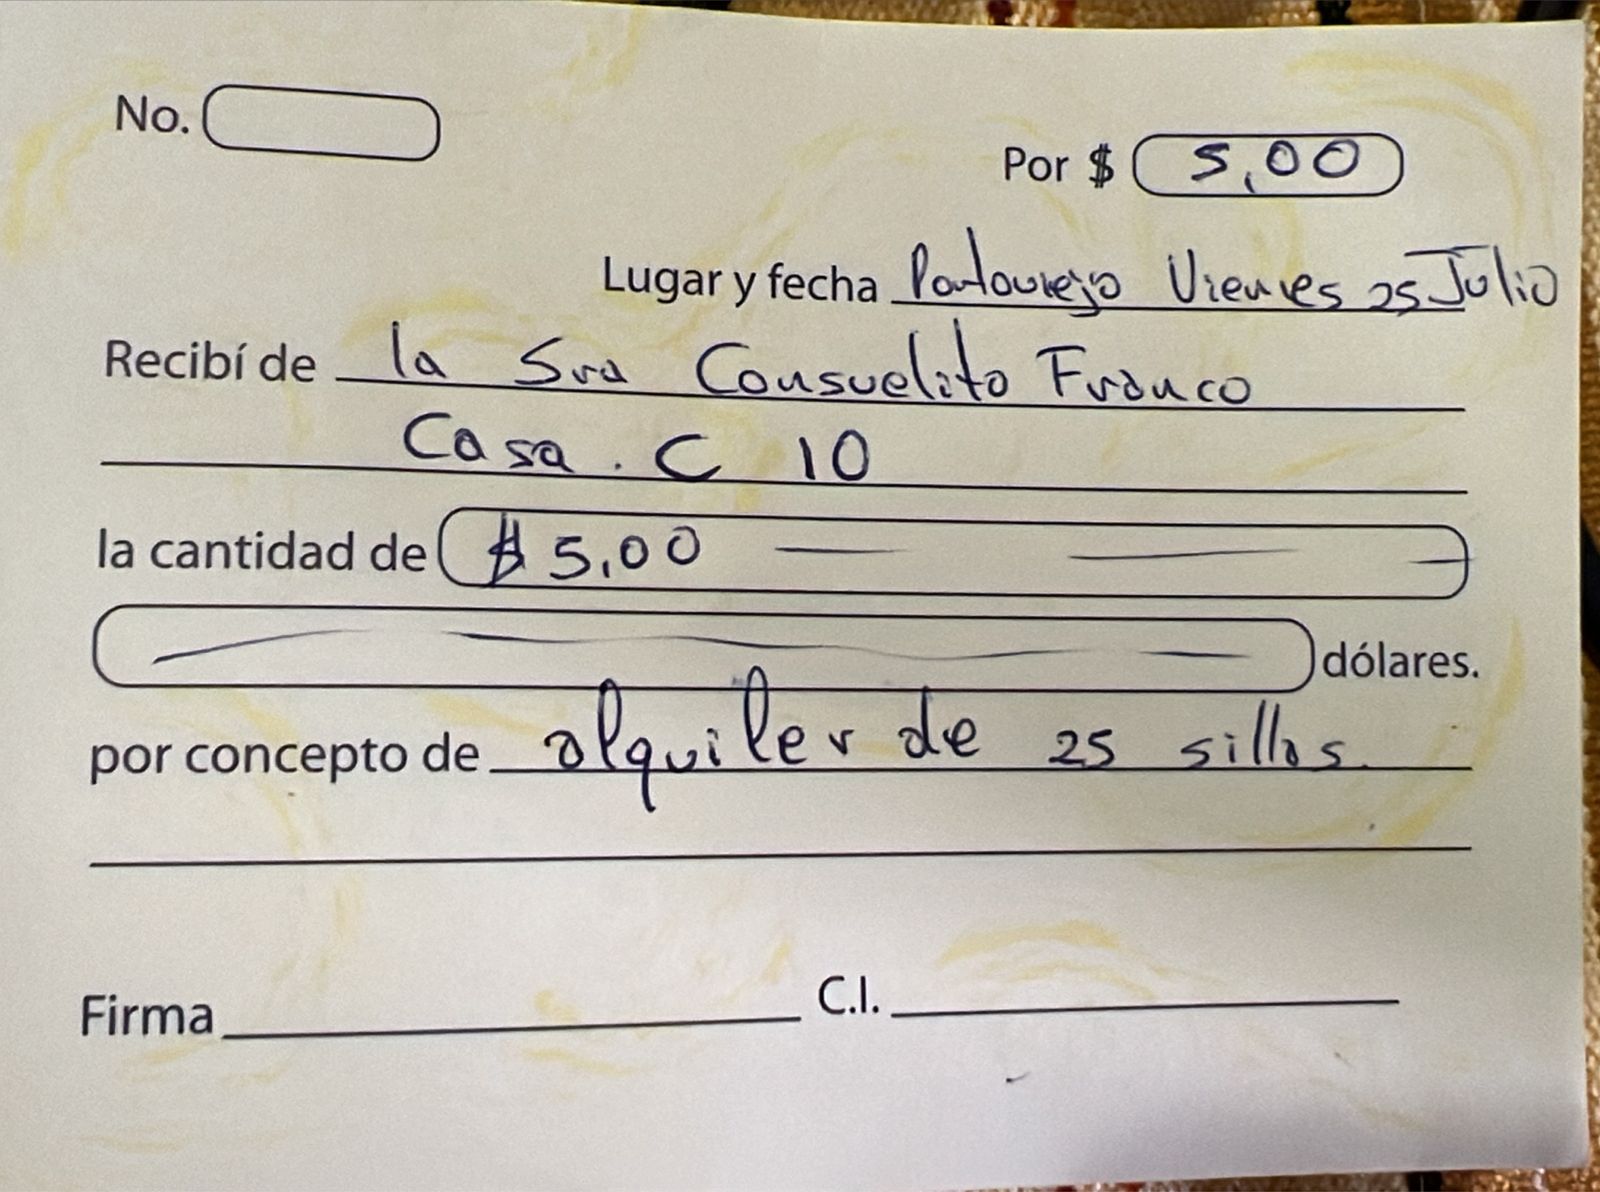 No.
Por $ 5,00
Lugar y fecha Portoviejo Viernes 25 Julio
Recibí de la Sra Consuelito Franco
Casa. C 10
la cantidad de $ 5,00
dólares.
por concepto de alquiler de 25 sillas.
Firma C.I.